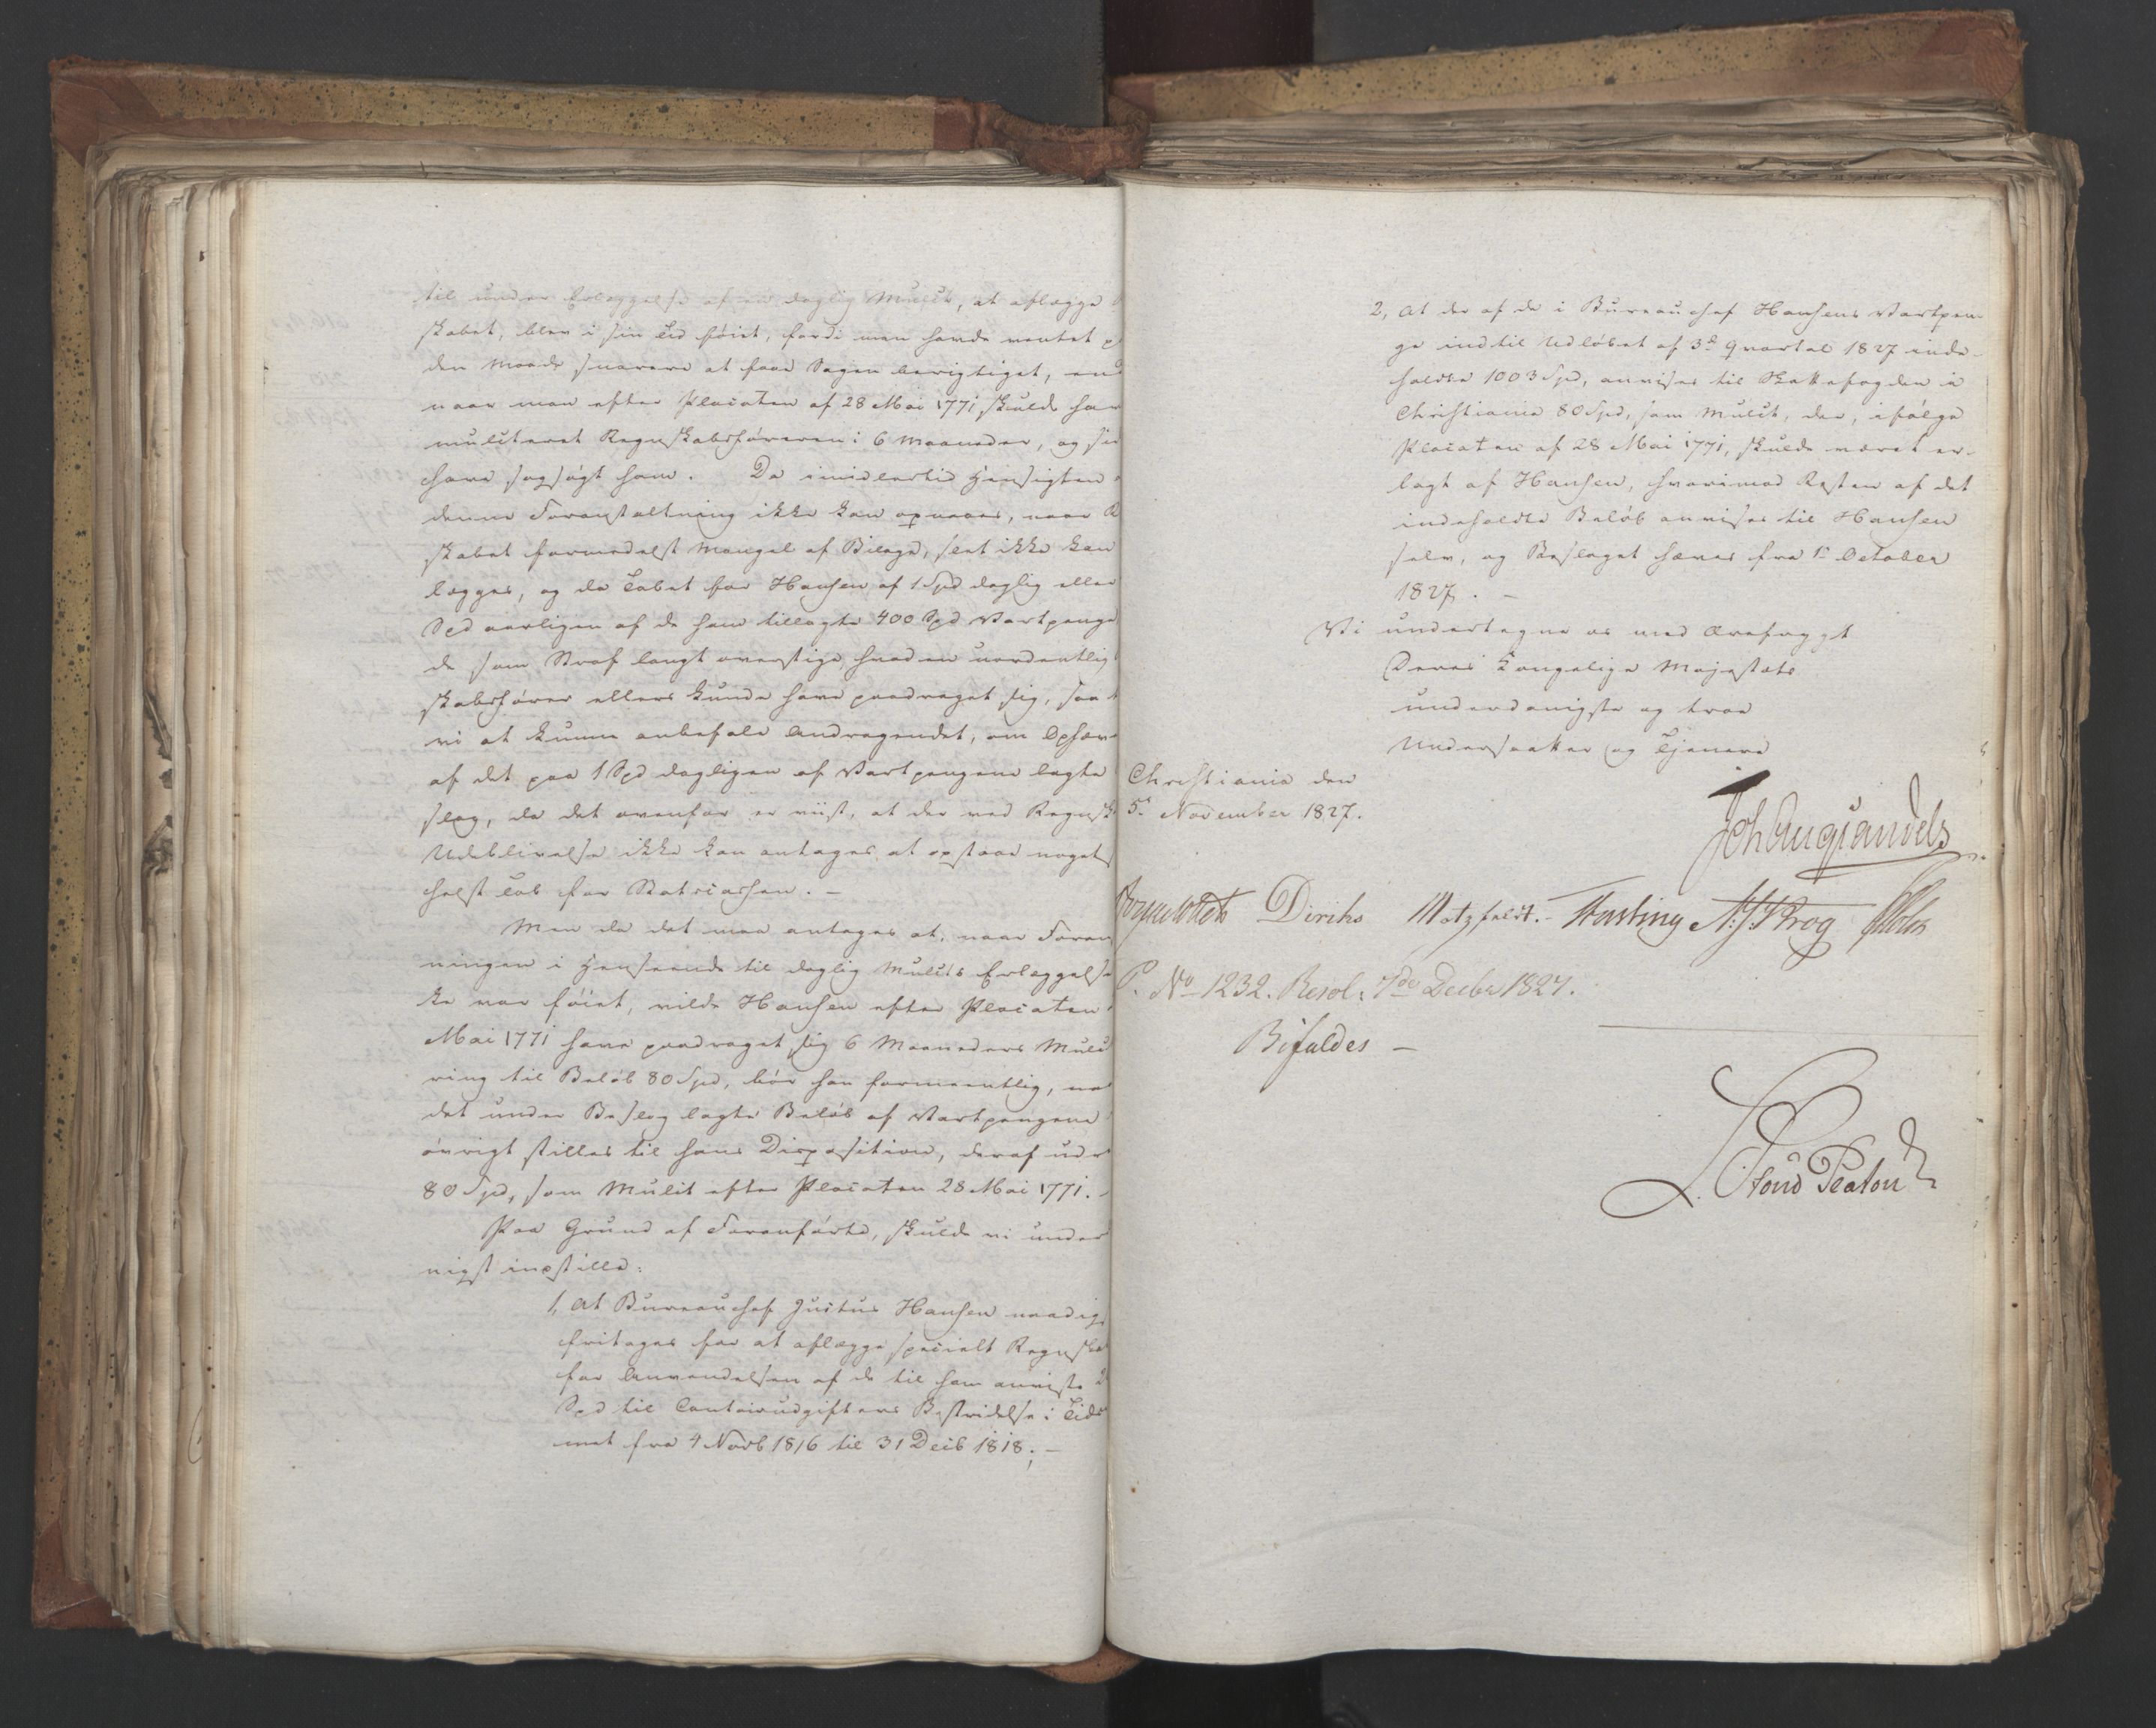 til under Erlæggelse af en daglig Mulct, at aflægge
skabet, blev i sin Tid föiet, fordi man havde ventet
den Maade snarere at faae Sagen berigtiget, end
naar man efter Placaten af 28 Mai 1771, skulde hav
mulcteret Regnskabsföreren i 6 Maaneder, og si
have sagsögt ham. Da imidlertid Hensigten
denne Foranstaltning ikke kan opnaaes, naar R
skabet formedelst Mangel af Bilage, slet ikke kan
lægges, og da Tabet for Hansen af 1 Spd daglig eller
Spd aarligen af de ham tillagte 400 Spd Vartpenge
de som Straf langt overstige, hvad en uordentlig
skabsfører ellers kunde have paadraget sig, saa t
vi at kunne anbefale Andragendet, om Ophæv
af det paa 1 Spd dagligen af Vartpengene lagte
slag, da det ovenfor er viist, at der ved Regnsk
Udeblivelse ikke kan antages at opstaae noget
helst Tab for Statscassen. –
Men da det maa antages at, naar Foran
ningen i Henseende til daglig Mulcts Erlæggelse
ke var föiet, vilde Hansen efter Placaten
Mai 1771 have paadraget sig 6 Maaneders Mulc
ring til Belöb 80 Spd, bör han formeentlig, na
det under Beslag lagte Belöb af Vartpengene
övrigt stilles til hans Disposition, deraf udr
80 Spd, som Mulct efter Placaten 28 Mai 1771. –
Paa Grund af Foranförte, skulde vi under
nigst indstille:
1, At Bureauchef Justus Hansen naadig
fritages for at aflægge specielt Regnskab
for Anvendelsen af de til ham anviste 2
Spd til Contoirudgifters Bestridelse i Tids
met fra 4 Novb 1816 til 31 Decb 1818; –
2, At der af de i Bureauchef Hansens Vartpen-
ge indtil Udløbet af 3d Qvartal 1827 inde-
holdte 1003 Spd, anvises til Skattefogden i
Christiania 80 Spd, som Mulct, der, ifölge
Placaten af 28 Mai 1771, skulde været er-
lagt af Hansen, hvorimod Resten af det
indeholdte Belöb anvises til Hansen
selv, og Beslaget hæves fra 1 October
1827. –
Vi undertegne os med Ærefrygt
Deres Kongelige Majestæts
underdanigste og troe
Undersaatter og Tjenere
Christiania den
5 November 1827.
Joh Aug Sandels
Diriks Motzfeldt. Fasting A. S. Krog Holst
P. No 1232. Resol. 7de Decbr 1827.
Bifaldes –